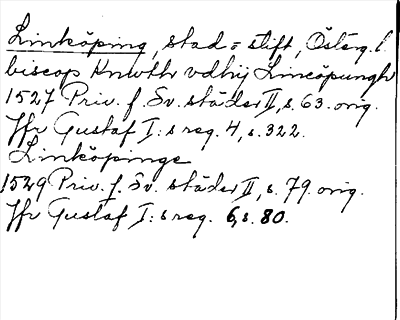 Linköping, stad o stift, Österg. l.
biscop Knwth vdhij Lincöpungh
1527 Priv. f. Sv. städer II, s. 63. orig.
Jfr Gustaf I:s reg. 4, s. 322.
Linköpinge
1529 Priv. f. Sv. städer II, s. 79. orig.
Jfr Gustaf I:s reg. 6, s. 80.